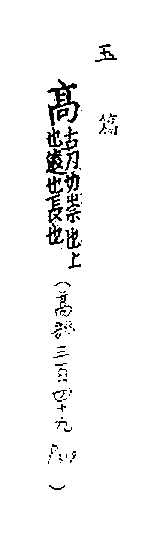 玉篇
髙
古刀切崇也上
也遠也長也
(髙部三百四十九)